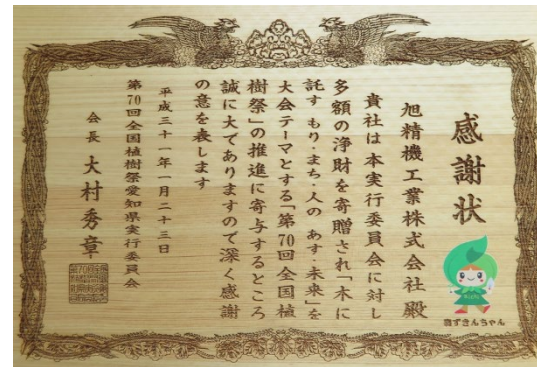 感謝状
旭精機工業株式会社殿
貴社は本実行委員会に対し
多額の浄財を寄贈され「木に
託す もり・まち・人の あす・未来」を
大会テーマとする「第70回全国植
樹祭」の推進に寄与するところ
誠に大でありますので深く感謝
の意を表します
平成三十一年一月二十三日
第70回全国植樹祭愛知県実行委員会
会長 大村秀章
森ずきんちゃん